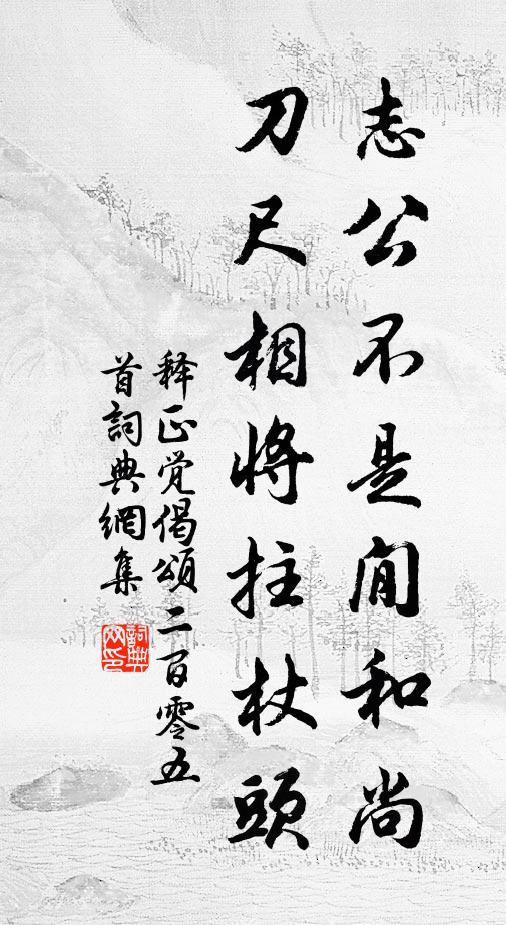 志公不是閒和尚
刀尺相將拄杖頭
释正觉偈頌二百零五
首詞典網集
詞典網印